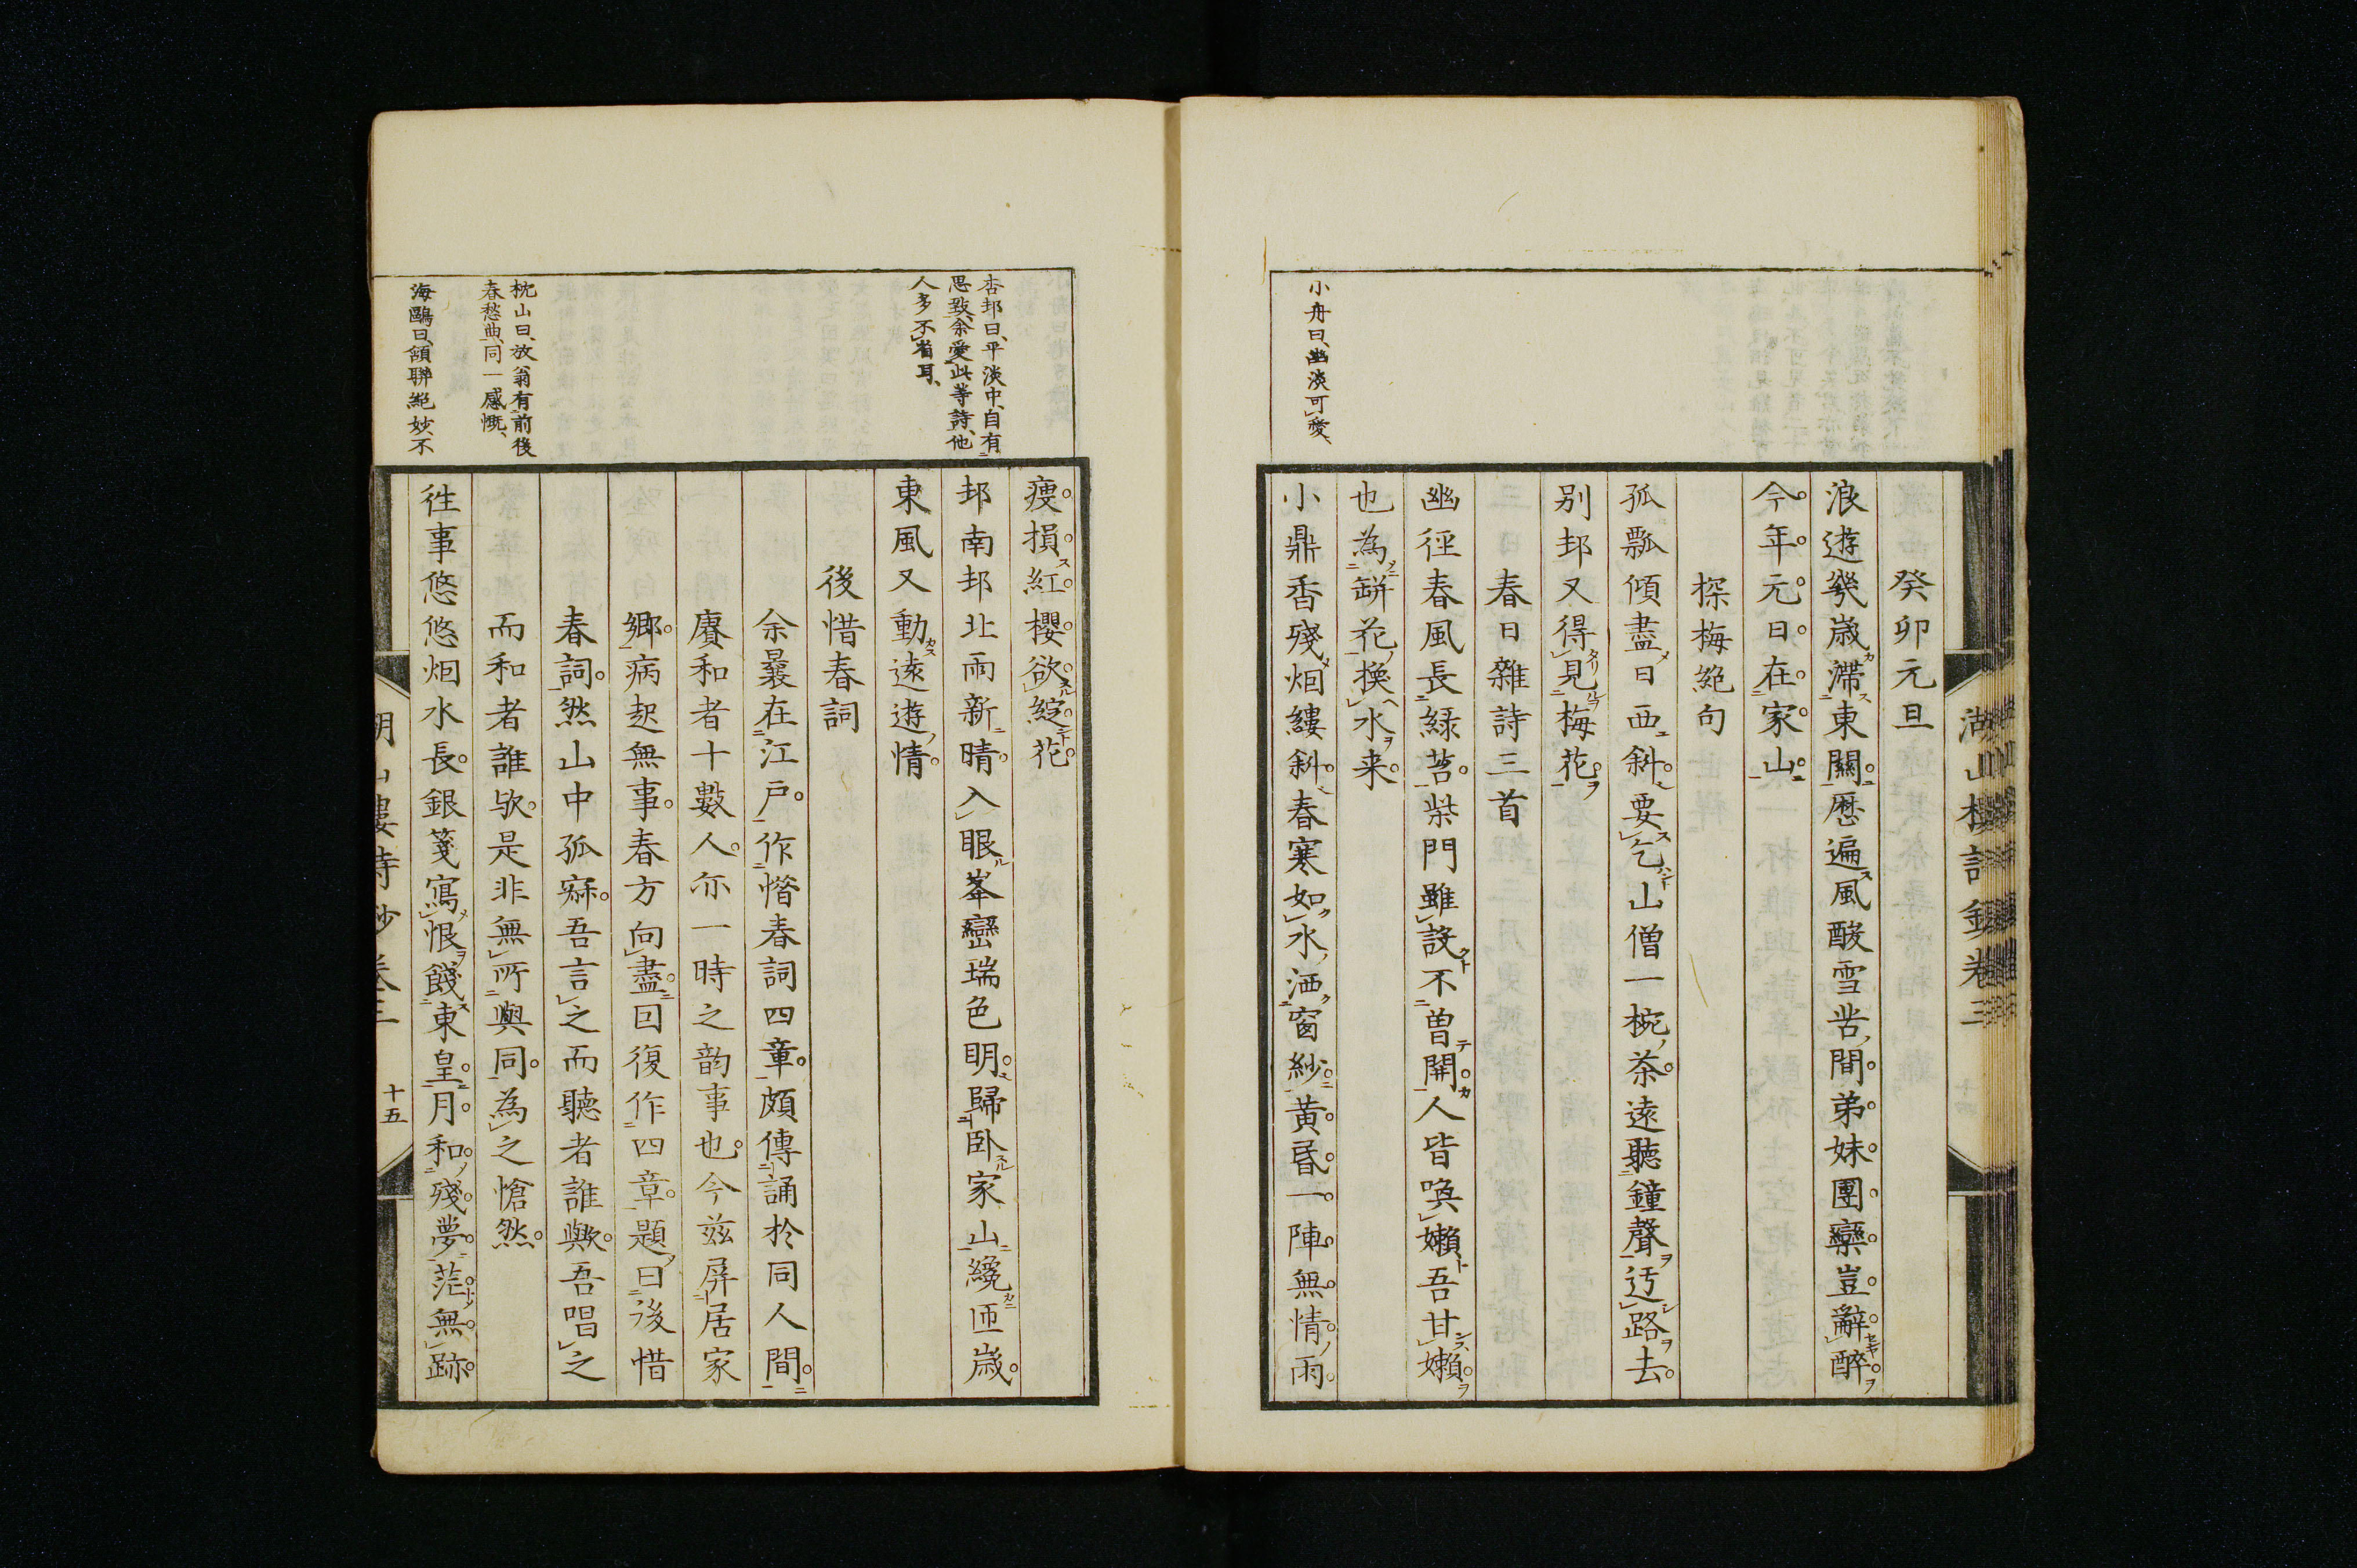 湖山楼詩鈔卷三
癸卯元旦
浪遊幾歳滯東關歷遍風酸雪苦間弟妹團欒豈辭醉
今年元日在家山
探梅絕句
孤瓢傾盡日西斜要乞山僧一椀茶遠聽鐘聲迂路去
別邨又得見梅花
春日雜詩三首
幽徑春風長綠苔柴門雖設不曽開人皆喚嬾吾甘嬾
也為缾花換水来
小鼎香殘烟縷斜春寒如水洒窗紗黄昬一陣無情雨
小舟曰、幽淡可愛、
瘦損紅櫻欲綻花
邨南邨北雨新晴入眼峯巒瑞色明歸卧家山纔匝歳
東風又動遠遊情
後惜春詞
余曩在江戸作惜春詞四章頗傳誦於同人間
賡和者十數人亦一時之韵事也今兹屏居家
郷病起無事春方向盡回復作四章題曰後惜
春詞然山中孤寐吾言之而聽者誰歟吾唱之
而和者誰欤是非無所與同為之愴然
徃事悠悠烟水長銀箋寫恨餞東皇月和殘夢茫無跡
杏邨曰、平淡中、自有
思致、余愛此等詩、他
人多不省耳、
枕山曰、放翁有前後
春愁曲、同一感慨、
海鷗曰、頷聯絕妙、不
湖山樓詩鈔卷三 十五